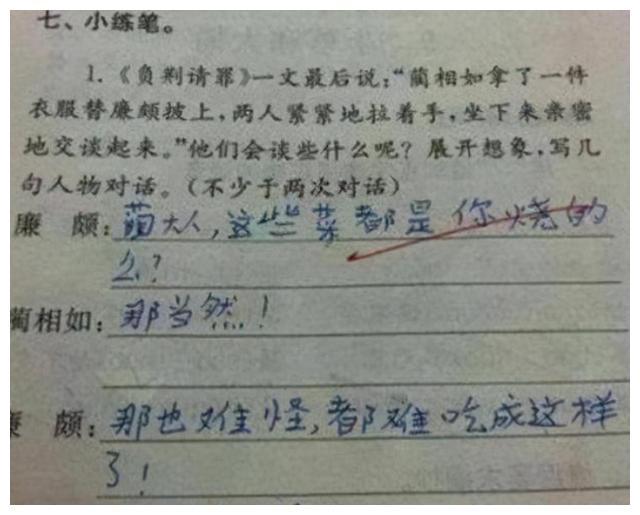 七、小练笔。
1.《负荆请罪》一文最后说:“蔺相如拿了一件
衣服替廉颇披上,两人紧紧地拉着手,坐下来亲密
地交谈起来。”他们会谈些什么呢?展开想象,写几
句人物对话。(不少于两次对话)
廉 颇:蔺大人,这些菜都是你烧的
么?
蔺相如:那当然!
廉 颇:那也难怪,都难吃成这样
了!